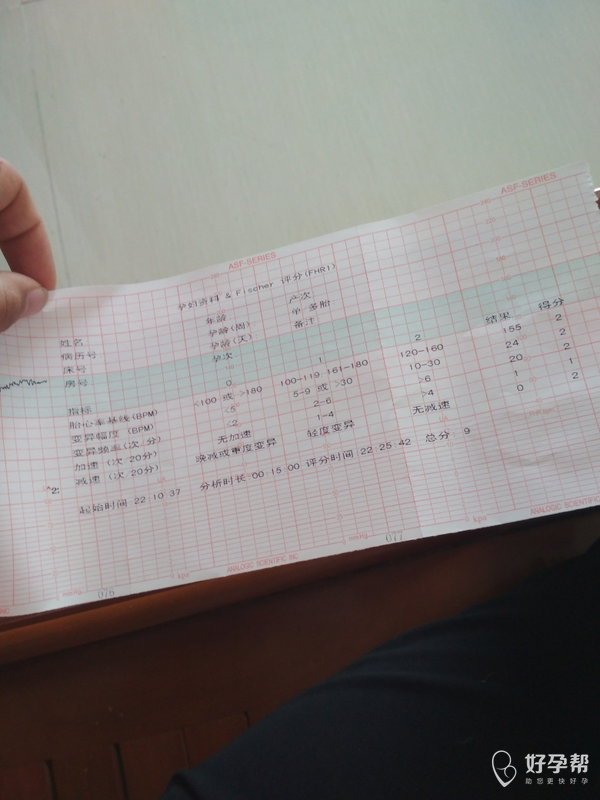 ASF-SERIES
ASF-SERIES
孕妇资料 & Fischer 评分(FHR1)
姓名 年龄 产次
病历号 孕龄(周) 单 多胎
床号 孕龄(天) 备注
房号 孕次
指标 0 1 2 结果 得分
胎心率基线(BPM) <100 或 >180 100-119 161-180 120-160 155 2
变异幅度 (BPM) <5 5-9 或 >30 10-30 24 2
变异频率(次 分) <2 2-6 >6 20 2
加速 (次 20分) 无加速 1-4 >4 1 1
减速 (次 20分) 晚减或重度变异 轻度变异 无减速 0 2
起始时间 22:10:37 分析时长:00:15:00 评分时间 22:25:42 总分 9
ANALOGIC SCIENTIFIC INC
kpa
ANALOGIC SCIENTIFIC
kpa
016
017
好孕帮
助您更快好孕